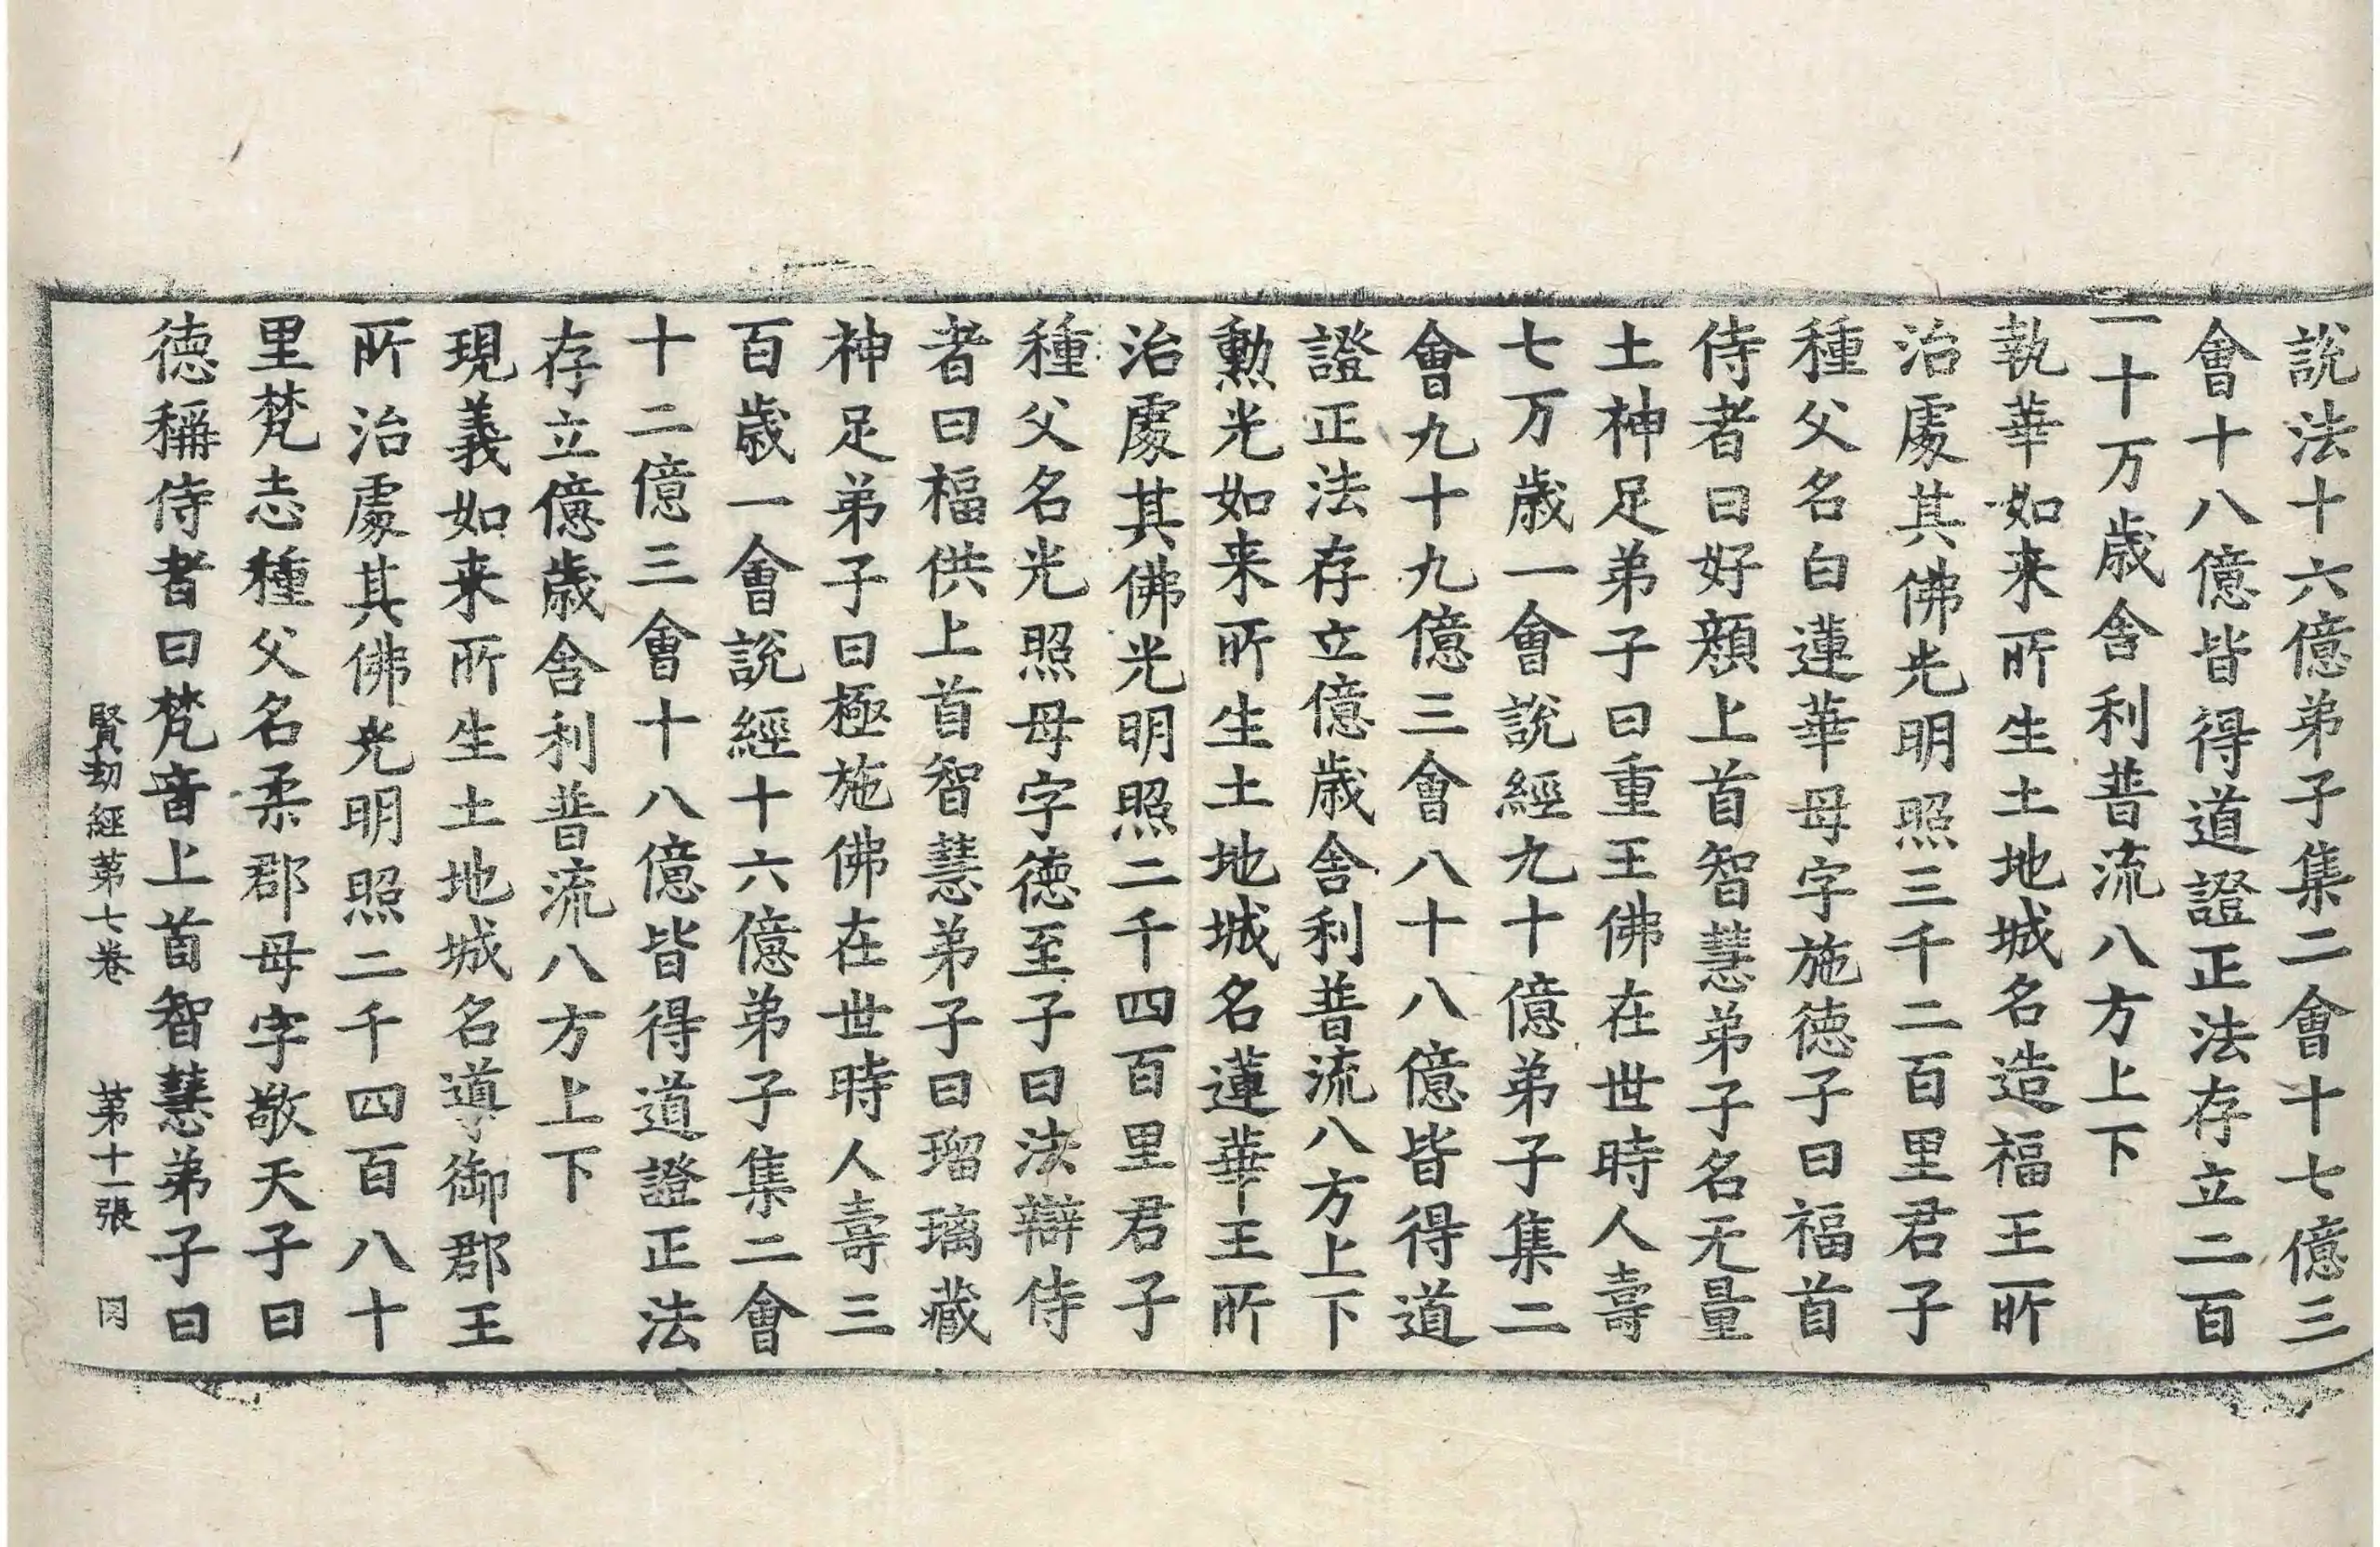 說法十六億弟子集二會十七億三
會十八億皆得道證正法存立二百
一十万歲舍利普流八方上下
執華如来所生土地城名造福王所
治處其佛光明照三千二百里君子
種父名白蓮華母字施德子曰福首
侍者曰好顏上首智慧弟子名无量
土神足弟子曰重王佛在世時人壽
七万歲一會說經九十億弟子集二
會九十九億三會八十八億皆得道
證正法存立億歲舍利普流八方上下
勲光如来所生土地城名蓮華王所
治處其佛光明照二千四百里君子
種父名光照母字德至子曰法辯侍
者曰福供上首智慧弟子曰瑠璃藏
神足弟子曰極施佛在世時人壽三
百歲一會說經十六億弟子集二會
十二億三會十八億皆得道證正法
存立億歲舍利普流八方上下
現義如来所生土地城名導御郡王
所治處其佛光明照二千四百八十
里梵志種父名柔郡母字敬天子曰
德稱侍者曰梵音上首智慧弟子曰
賢劫經苐七卷 苐十一張